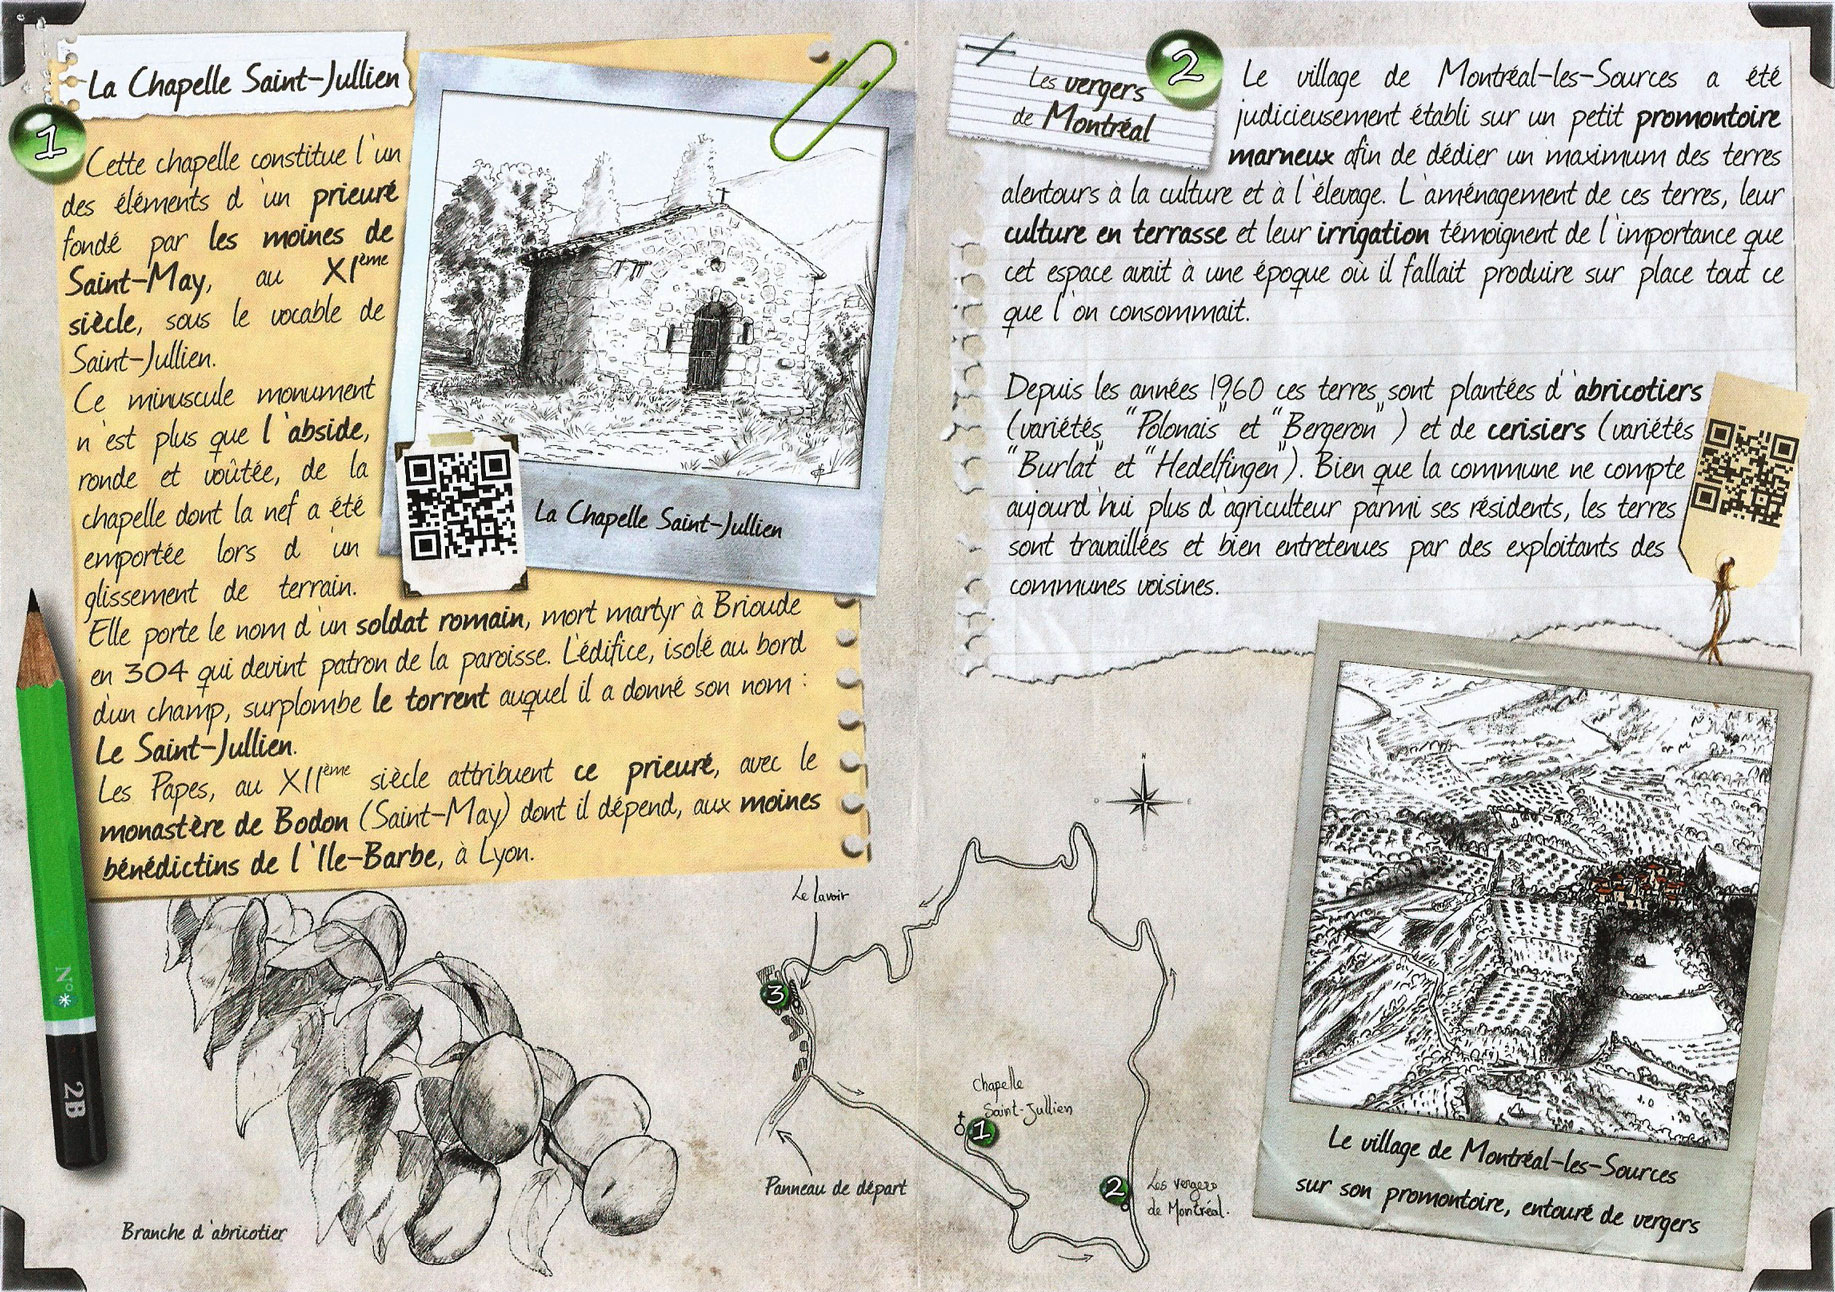 La Chapelle Saint-Jullien
1
Cette chapelle constitue l'un
des éléments d'un prieuré
fondé par les moines de
Saint-May, au XIème
siècle, sous le vocable de
Saint-Jullien.
Ce minuscule monument
n'est plus que l'abside,
ronde et voûtée, de la
chapelle dont la nef a été
emportée lors d'un
glissement de terrain.
Elle porte le nom d'un soldat romain, mort martyr à Brioude
en 304 qui devint patron de la paroisse. L'édifice, isolé au bord
d'un champ, surplombe le torrent auquel il a donné son nom :
Le Saint-Jullien.
Les Papes, au XIIème siècle attribuent ce prieuré, avec le
monastère de Bodon (Saint-May) dont il dépend, aux moines
bénédictins de l'Ile-Barbe, à Lyon.
La Chapelle Saint-Jullien
N°*
2B
Branche d'abricotier
Les vergers
de Montréal
2
Le village de Montréal-les-Sources a été
judicieusement établi sur un petit promontoire
marneux afin de dédier un maximum des terres
alentours à la culture et à l'élevage. L'aménagement de ces terres, leur
culture en terrasse et leur irrigation témoignent de l'importance que
cet espace avait à une époque où il fallait produire sur place tout ce
que l'on consommait.
Depuis les années 1960 ces terres sont plantées d'abricotiers
(variétés "Polonais" et "Bergeron") et de cerisiers (variétés
"Burlat" et "Hedelfingen"). Bien que la commune ne compte
aujourd'hui plus d'agriculteur parmi ses résidents, les terres
sont travaillées et bien entretenues par des exploitants des
communes voisines.
N
O
E
S
Le lavoir
3
Chapelle
Saint-Jullien
1
2
Les vergers
de Montréal.
Panneau de départ
Le village de Montréal-les-Sources
sur son promontoire, entouré de vergers